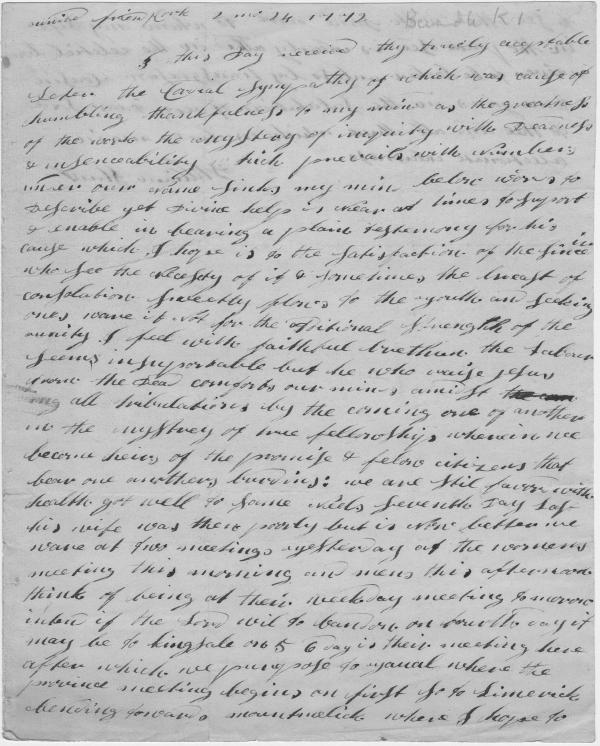 2 mo 24 1772
I this Day received thy truely acceptable
Leter the Cordial Sympathy of which was cause of
humbling thankfulness to my mind as the greatness
of the work the mystery of iniquity with Deadness
& insenceability hich prevails with Numbers
under our name Sinks my min below words to
Describe yet Divine help is Near at times to Support
& enable in bearing a plain testemony for his
cause which I hope is to the Satisfaction of the Since
who See the Necesity of it & Sometimes the breast of
consolation Sweetly flows to the youth and Seeking
ones ware it Not for the aditional Strength of the
unity I feel with faithful brethren the Labour
Seems insuportable but he who raise Jesus
from the Dead comforts our mins amidst
all tribulations by the coming one of another
in the mystrey of true fellowship wherein we
become heirs of the promise & felow citizens that
bear one anothers burdins: we are Stil favord with
health got well to Saml Neals Seventh Day Last
his wife was then poorly but is Now better we
ware at two meetings yesterday at the womens
meeting this morning and mens this afternoon
think of being at their weekday meeting tomorow
inten if the Lord wil to bandon on fourth day it
may be to kingsale on 5 6 day is their meeting here
after which we purpose to youal where the
province meeting begins on first So to Limerick
bending towards mountmelick where I hope to